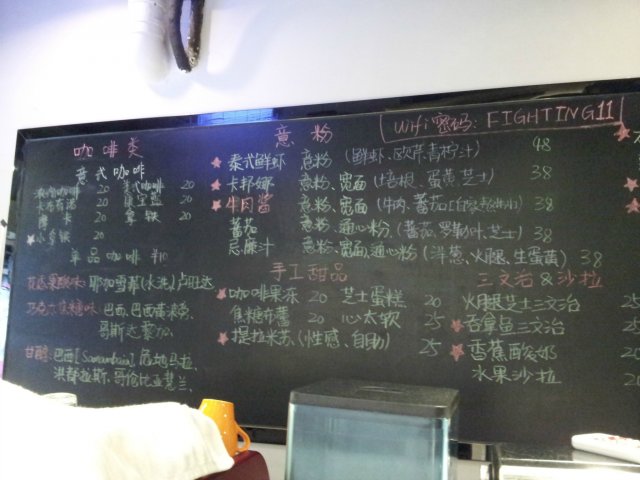 咖啡类
意式咖啡
20 美式咖啡 20
卡布奇诺 20 20
摩卡 20 拿铁 20
拿铁 20
单品咖啡 ¥10
花香果酸味: 耶加雪菲(水洗) 卢旺达
巧克力焦糖味: 巴西, 巴西黄波旁,
哥斯达黎加,
甘醇: 巴西 危地马拉,
洪都拉斯, 哥伦比亚慧兰,
意粉
Wifi密码: FIGHTING11
泰式鲜虾 意粉 (鲜虾、欧芹,青柠汁) 48
卡邦娜 意粉、宽面 (培根、蛋黄,芝士) 38
牛肉酱 意粉、宽面 (牛肉、蕃茄 38
蕃茄 意粉、通心粉、 (蕃茄、罗勒叶、芝士) 38
忌廉汁 意粉、宽面,通心粉 (洋葱、火腿、生蛋黄) 38
手工甜品
咖啡果冻 20 芝士蛋糕 20
焦糖布蕾 20 心太软 25
提拉米苏、(性感、自助) 25
三文治 & 沙拉
火腿芝士三文治 25
吞拿鱼三文治 25
香蕉酸奶 20
水果沙拉 20